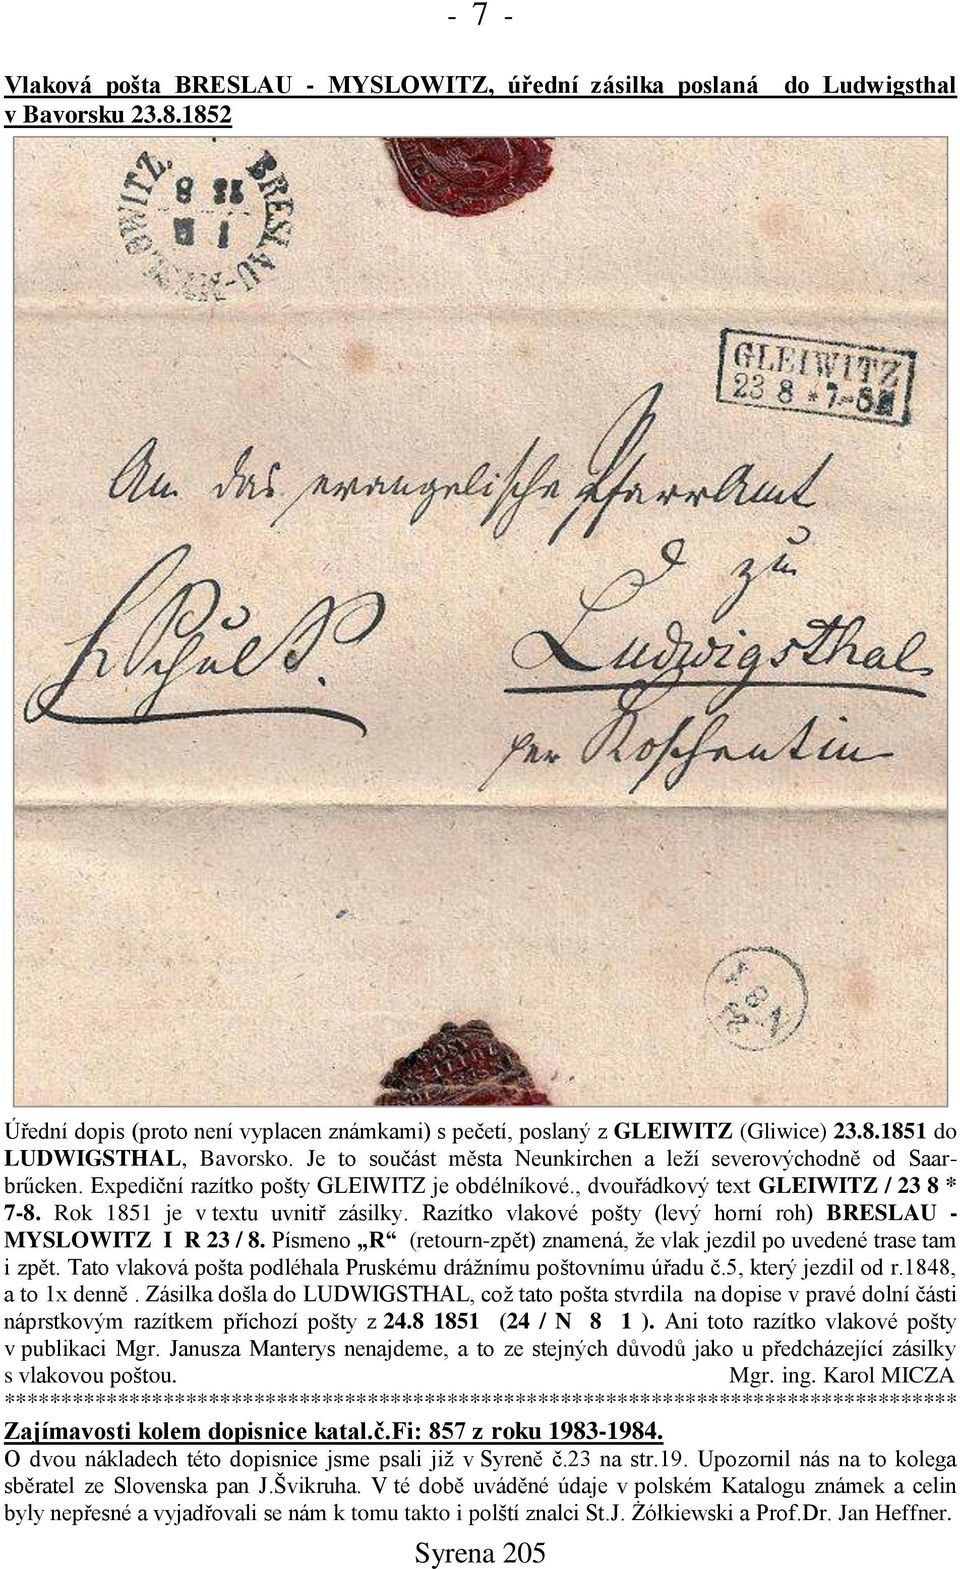 - 7 -
Vlaková pošta BRESLAU - MYSLOWITZ, úřední zásilka poslaná do Ludwigsthal
v Bavorsku 23.8.1852
BRESLAU-
OWITZ.
8 23
I
GLEIWITZ
23 8 * 7-8
An das evangelische Pfarr Amt
zu
Schul
Ludwigsthal
per Koschentin
24
N 8 1
Úřední dopis (proto není vyplacen známkami) s pečetí, poslaný z GLEIWITZ (Gliwice) 23.8.1851 do
LUDWIGSTHAL, Bavorsko. Je to součást města Neunkirchen a leží severovýchodně od Saar-
brűcken. Expediční razítko pošty GLEIWITZ je obdélníkové., dvouřádkový text GLEIWITZ / 23 8 *
7-8. Rok 1851 je v textu uvnitř zásilky. Razítko vlakové pošty (levý horní roh) BRESLAU -
MYSLOWITZ I R 23 / 8. Písmeno „R“ (retourn-zpět) znamená, že vlak jezdil po uvedené trase tam
i zpět. Tato vlaková pošta podléhala Pruskému drážnímu poštovnímu úřadu č.5, který jezdil od r.1848,
a to 1x denně . Zásilka došla do LUDWIGSTHAL, což tato pošta stvrdila na dopise v pravé dolní části
náprstkovým razítkem příchozí pošty z 24.8 1851 (24 / N 8 1 ). Ani toto razítko vlakové pošty
v publikaci Mgr. Janusza Manterys nenajdeme, a to ze stejných důvodů jako u předcházející zásilky
s vlakovou poštou. Mgr. ing. Karol MICZA
*************************************************************************************
Zajímavosti kolem dopisnice katal.č.Fi: 857 z roku 1983-1984.
O dvou nákladech této dopisnice jsme psali již v Syreně č.23 na str.19. Upozornil nás na to kolega
sběratel ze Slovenska pan J.Švikruha. V té době uváděné údaje v polském Katalogu známek a celin
byly nepřesné a vyjadřovali se nám k tomu takto i polští znalci St.J. Żółkiewski a Prof.Dr. Jan Heffner.
Syrena 205